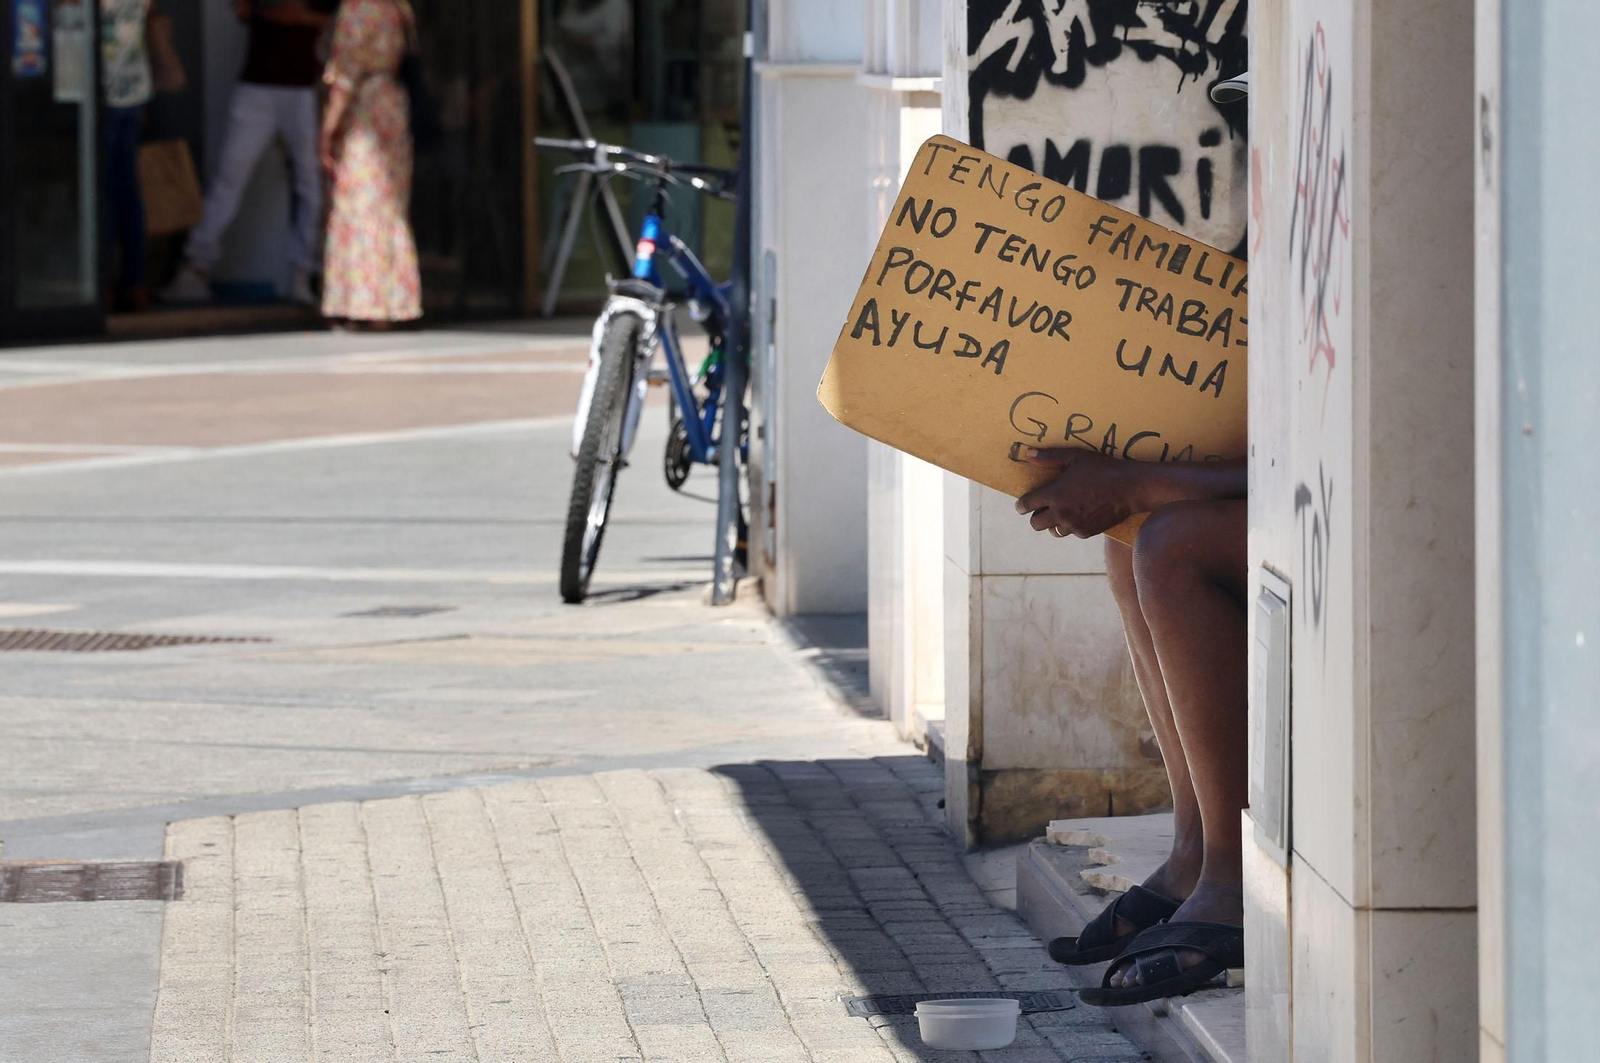 AMORÍ
TENGO FAMILIA
NO TENGO TRABAJ
PORFAVOR UNA
AYUDA
GRACIAS
TOY